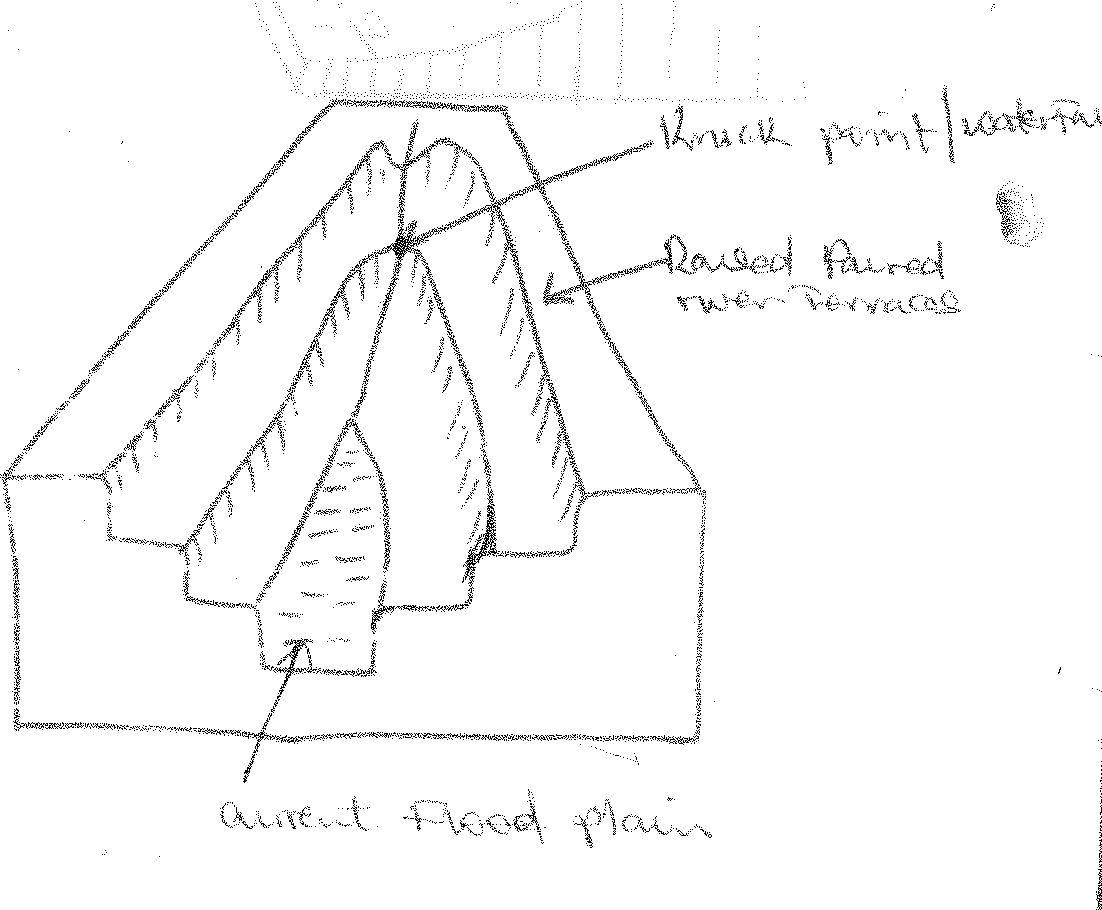 Knick point/waterfa
Raised Paired
river Terraces
current Flood plain